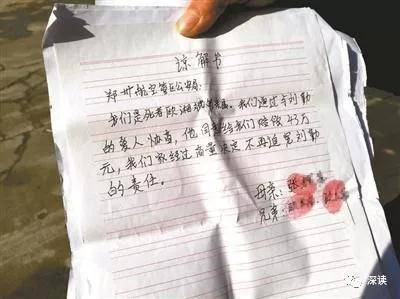 谅解书
郑州航空港区公安局
我们是死者欧湘斌家属。我们通过与刘勤
的家人协商,他同意给我们赔偿43万
元,我们家经过商量决定不再追究刘勤
的责任。
母亲:张
兄弟:
深读